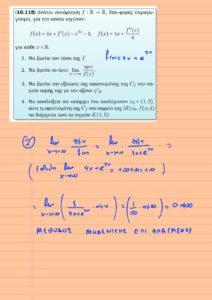 (16.115) Δίνεται συνάρτηση f : ℝ → ℝ, δύο φορές παραγωγίσιμη, για την οποία ισχύουν:
f(x) = 4x + e^{2x}
f(x) = 4x + f''(x)/4
για κάθε x ∈ ℝ.
1. Να βρείτε τον τύπο της f.
2. Να βρείτε το όριο lim x→+∞ ημx/f(x).
3. Να βρείτε την εξίσωση της εφαπτομένης της C_f στο σημείο τομής της με τον άξονα y'y.
4. Να αποδείξετε ότι υπάρχει ένα τουλάχιστον x₀ ∈ (1, 2), ώστε η εφαπτομένη της C_f στο σημείο της M(x₀, f(x₀)) να διέρχεται από το σημείο K(1, 5)
② lim x→+∞ ημx/f(x) = lim x→+∞ ημx/(4x+e^{2x}) =
lim x→+∞ 4x+e^{2x} = +∞+∞ = +∞
= lim x→+∞ (1/(4x+e^{2x}) · ημx) =
ΜΕΘΟΔΟΣ ΜΗΔΕΝΙΚΗΣ ΕΠΙ ΦΡΑΓΜΕΝΗΣ